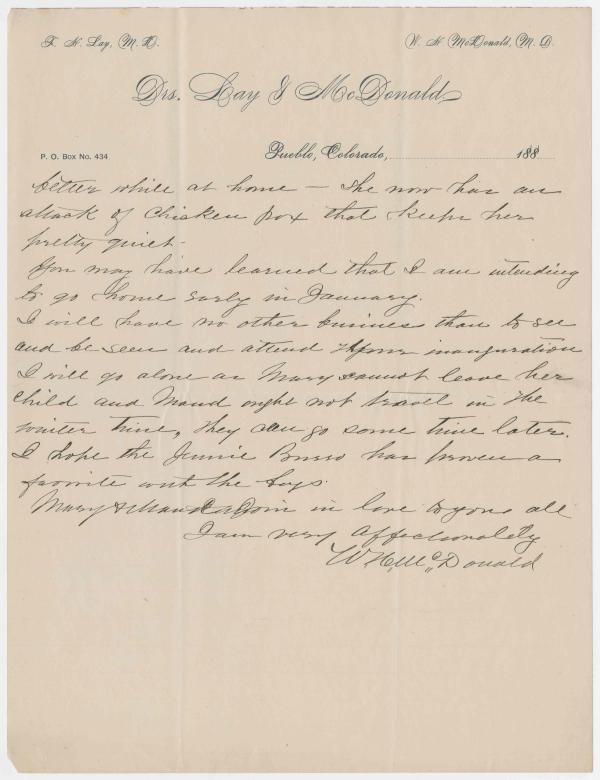 F. H. Lay, M. D.
W. H. McDonald, M. D.
Drs. Lay & McDonald,
P. O. Box No. 434
Pueblo, Colorado, 188
better while at home — she now has an
attack of Chicken pox that keeps her
pretty quiet.
You may have learned that I am intending
to go home early in January.
I will have no other business than to see
and be seen and attend inauguration
I will go alone as Mary cannot leave her
child and Maud ought not travel in the
winter time, they can go some time later.
I hope the Jennie has proven a
favorite with the boys.
Mary & Maud join in love to you all
I am very affectionately
W H Mc Donald